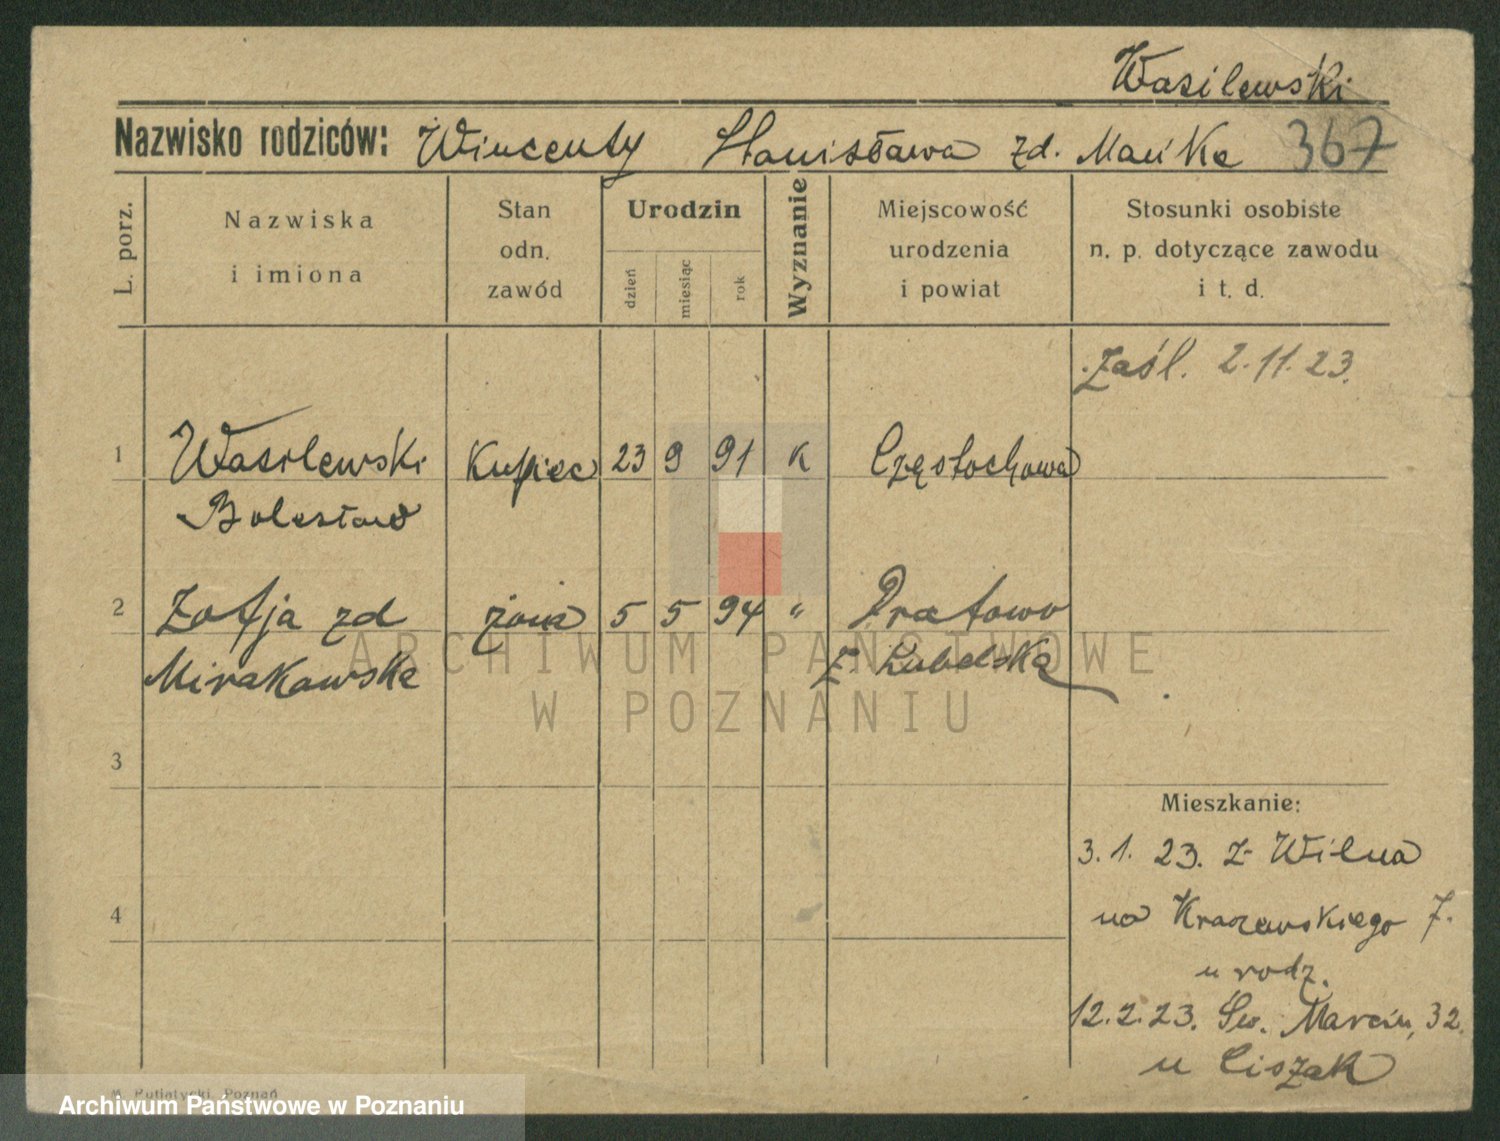 Wasilewski
Nazwisko rodziców: Wincenty Stanisława zd. Mańke 367
L. porz.
Nazwiska
i imiona
Stan
odn.
zawód
Urodzin
dzień
miesiąc
rok
Wyznanie
Miejscowość
urodzenia
i powiat
Stosunki osobiste
n. p. dotyczące zawodu
i t. d.
Zaśl. 2.11.23.
1 Wasilewski Kupiec 23 9 91 K Częstochowa
Bolesław
2 Zofja zd żona 5 5 94 " Pratowo
Mirakowske Z. Lubelska
ARCHIWUM PAŃSTWOWE
W POZNANIU
3
Mieszkanie:
3.1. 23. z Wilna
4
na Kraszewskiego 7.
u rodz.
12.2.23. Św. Marcin, 32
u Ciszak
M. Putiatycki, Poznań
Archiwum Państwowe w Poznaniu